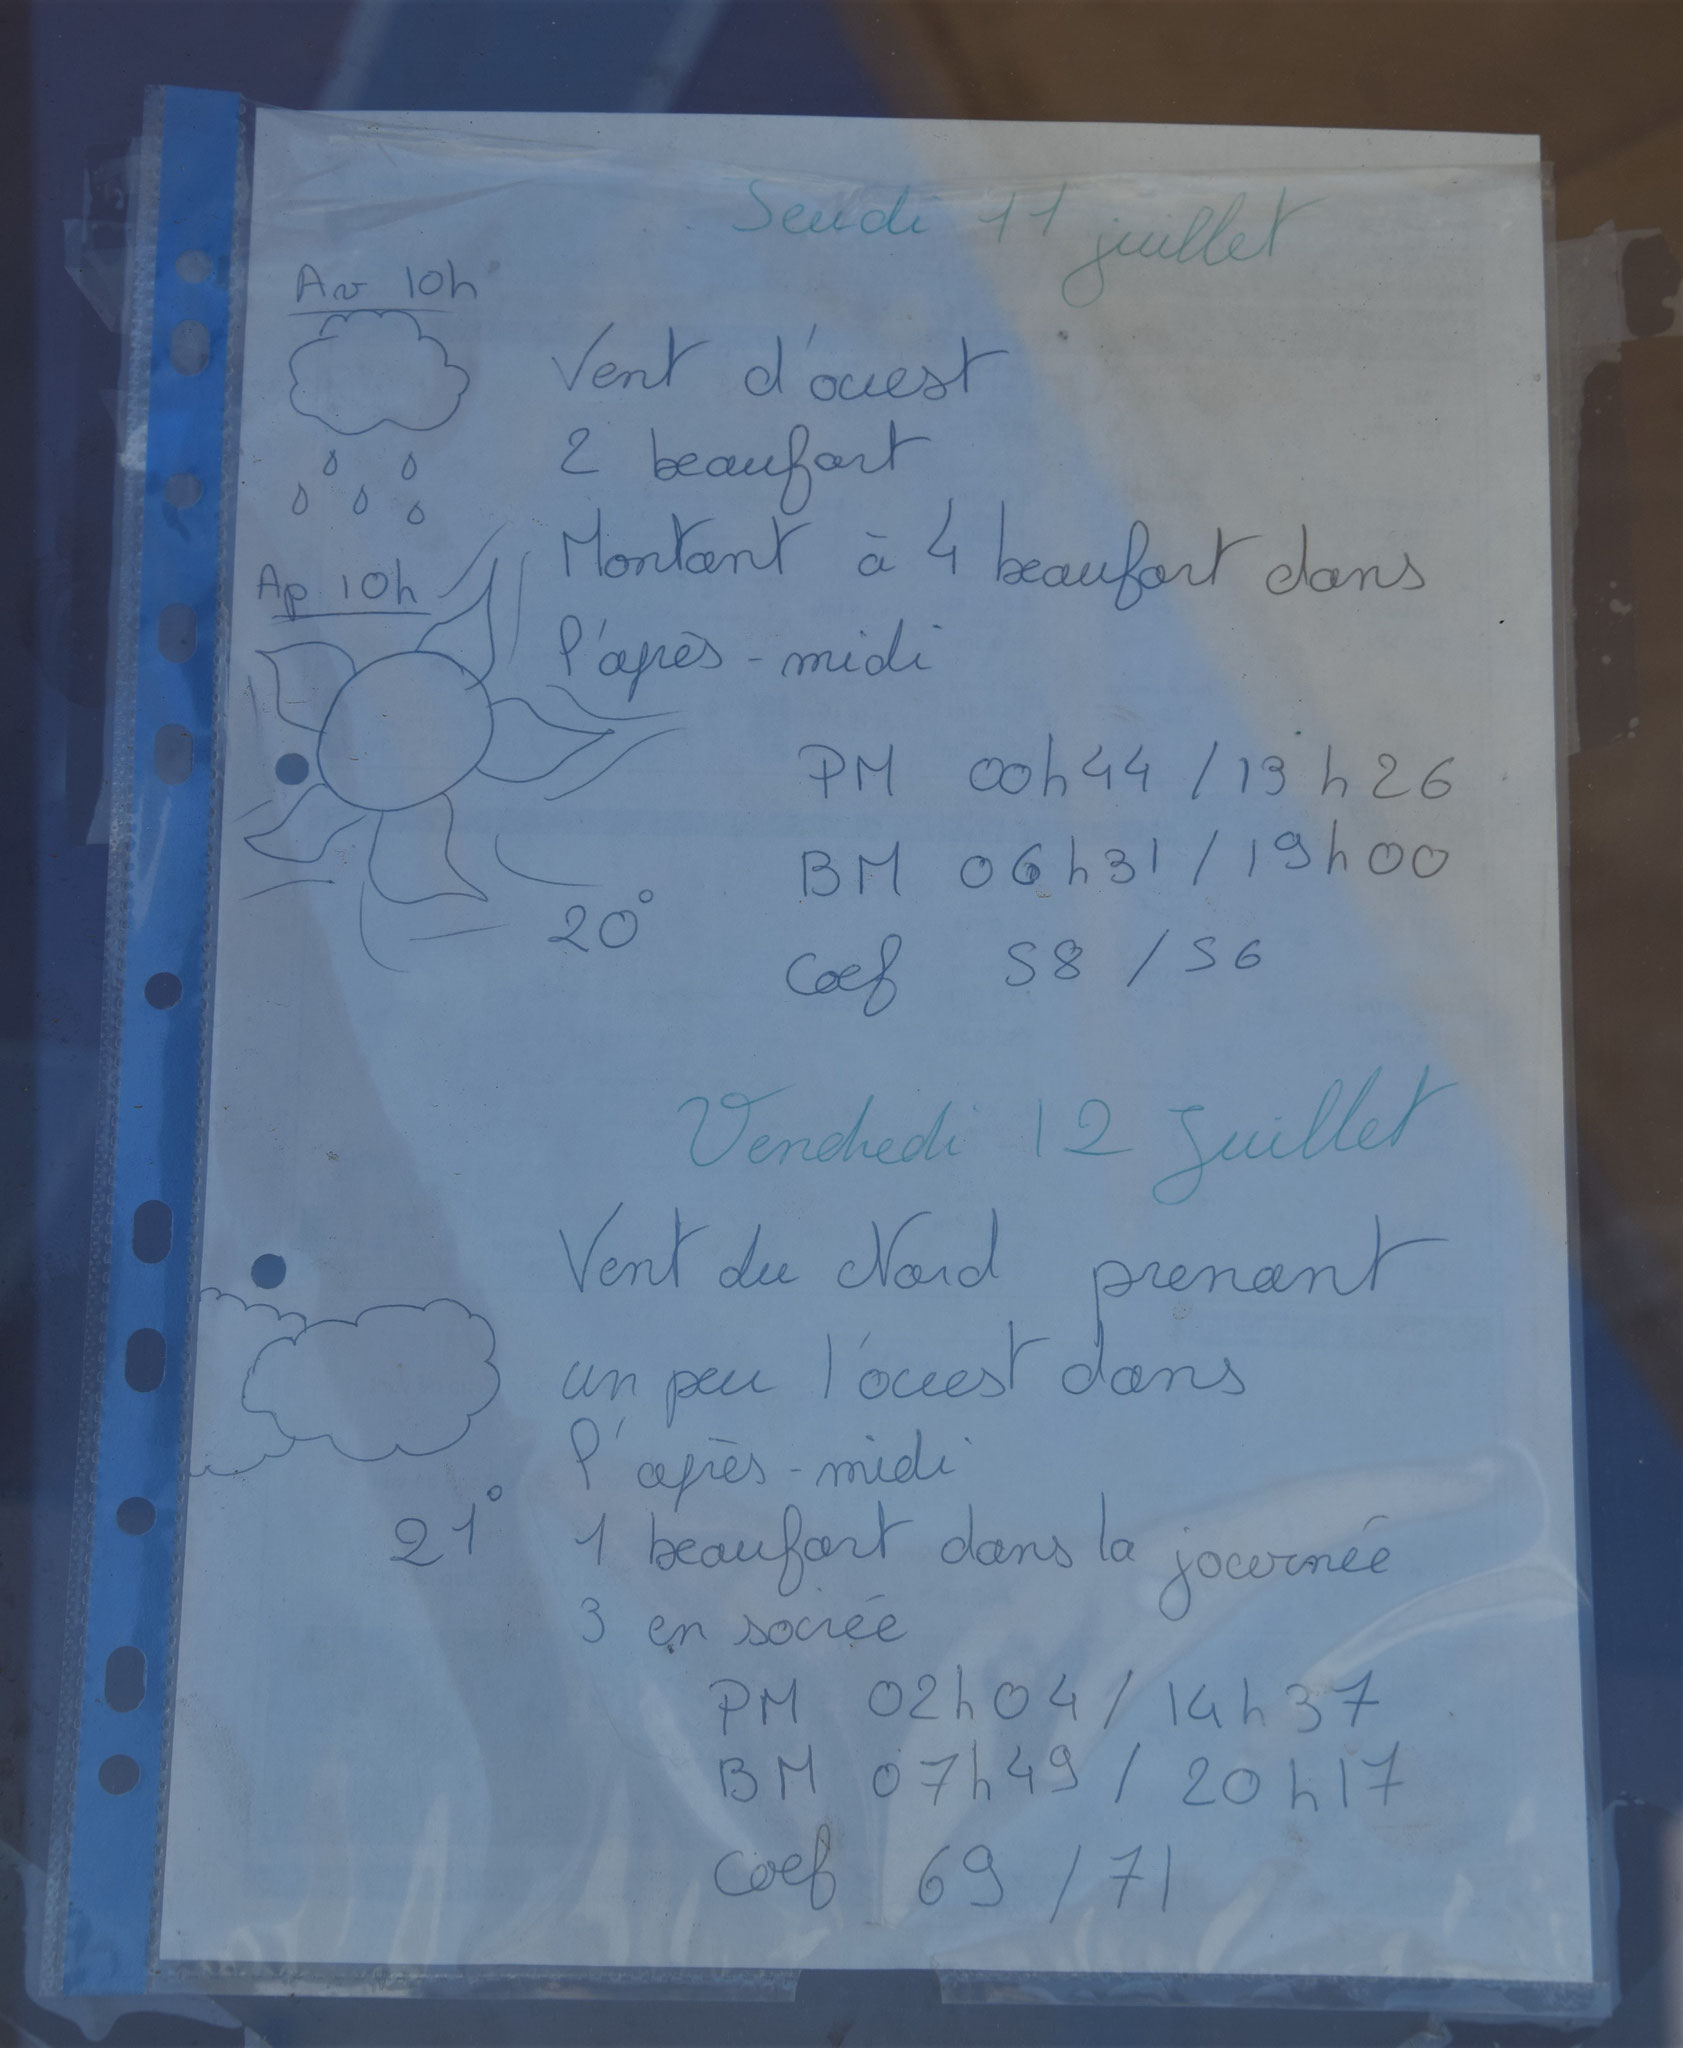 Jeudi 11 juillet
Av 10h
Vent d'ouest
2 beaufort
Montant à 4 beaufort dans
l'après-midi
Ap 10h
20°
PM 00h44 / 13h26
BM 06h31 / 19h00
Coef 58 / 56
Vendredi 12 Juillet
Vent du Nord prenant
un peu l'ouest dans
l'après-midi
21°
1 beaufort dans la journée
3 en soirée
PM 02h04 / 14h37
BM 07h49 / 20h17
Coef 69 / 71